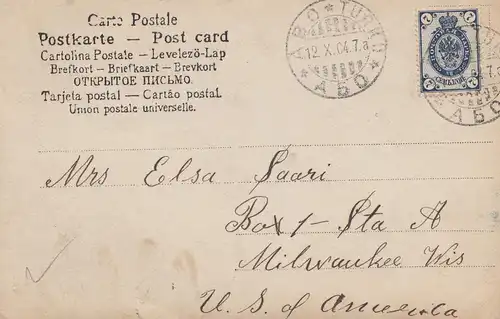 Carte Postale
Postkarte — Post card
Cartolina Postale — Levelezö-Lap
Brefkort — Briefkaart — Brevkort
ОТКРЫТОЕ ПИСЬМО.
Tarjeta postal — Cartão postal.
Union postale universelle.
ÅBO * TURKU
12.X.04.7.a
* АБО *
7
7
7
АБО
Mrs Elsa Saari
Box 1 - Sta A
Milwaukee Wis
U. S. of America